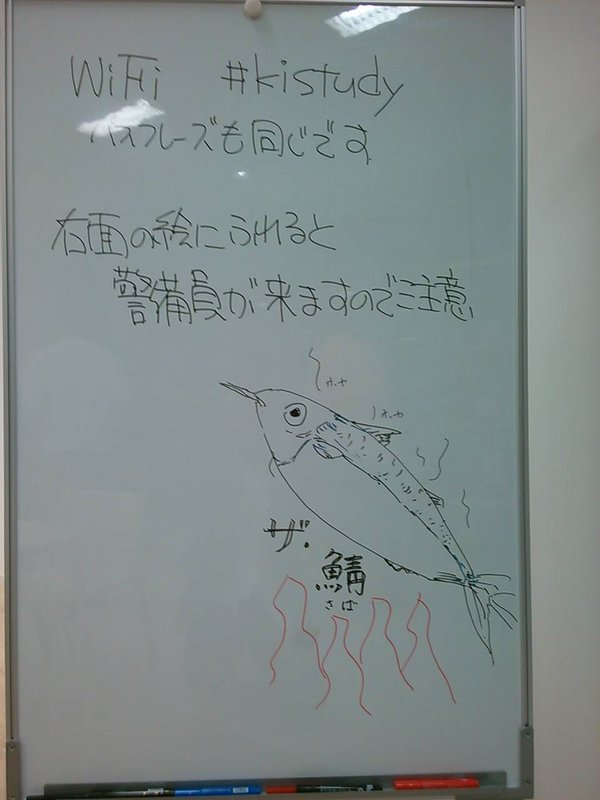 WiFi #kistudy
パスフレーズも同じです
右面の絵にふれると
警備員が来ますのでご注意
ホヤ
ホヤ
ザ・
鯖
さば